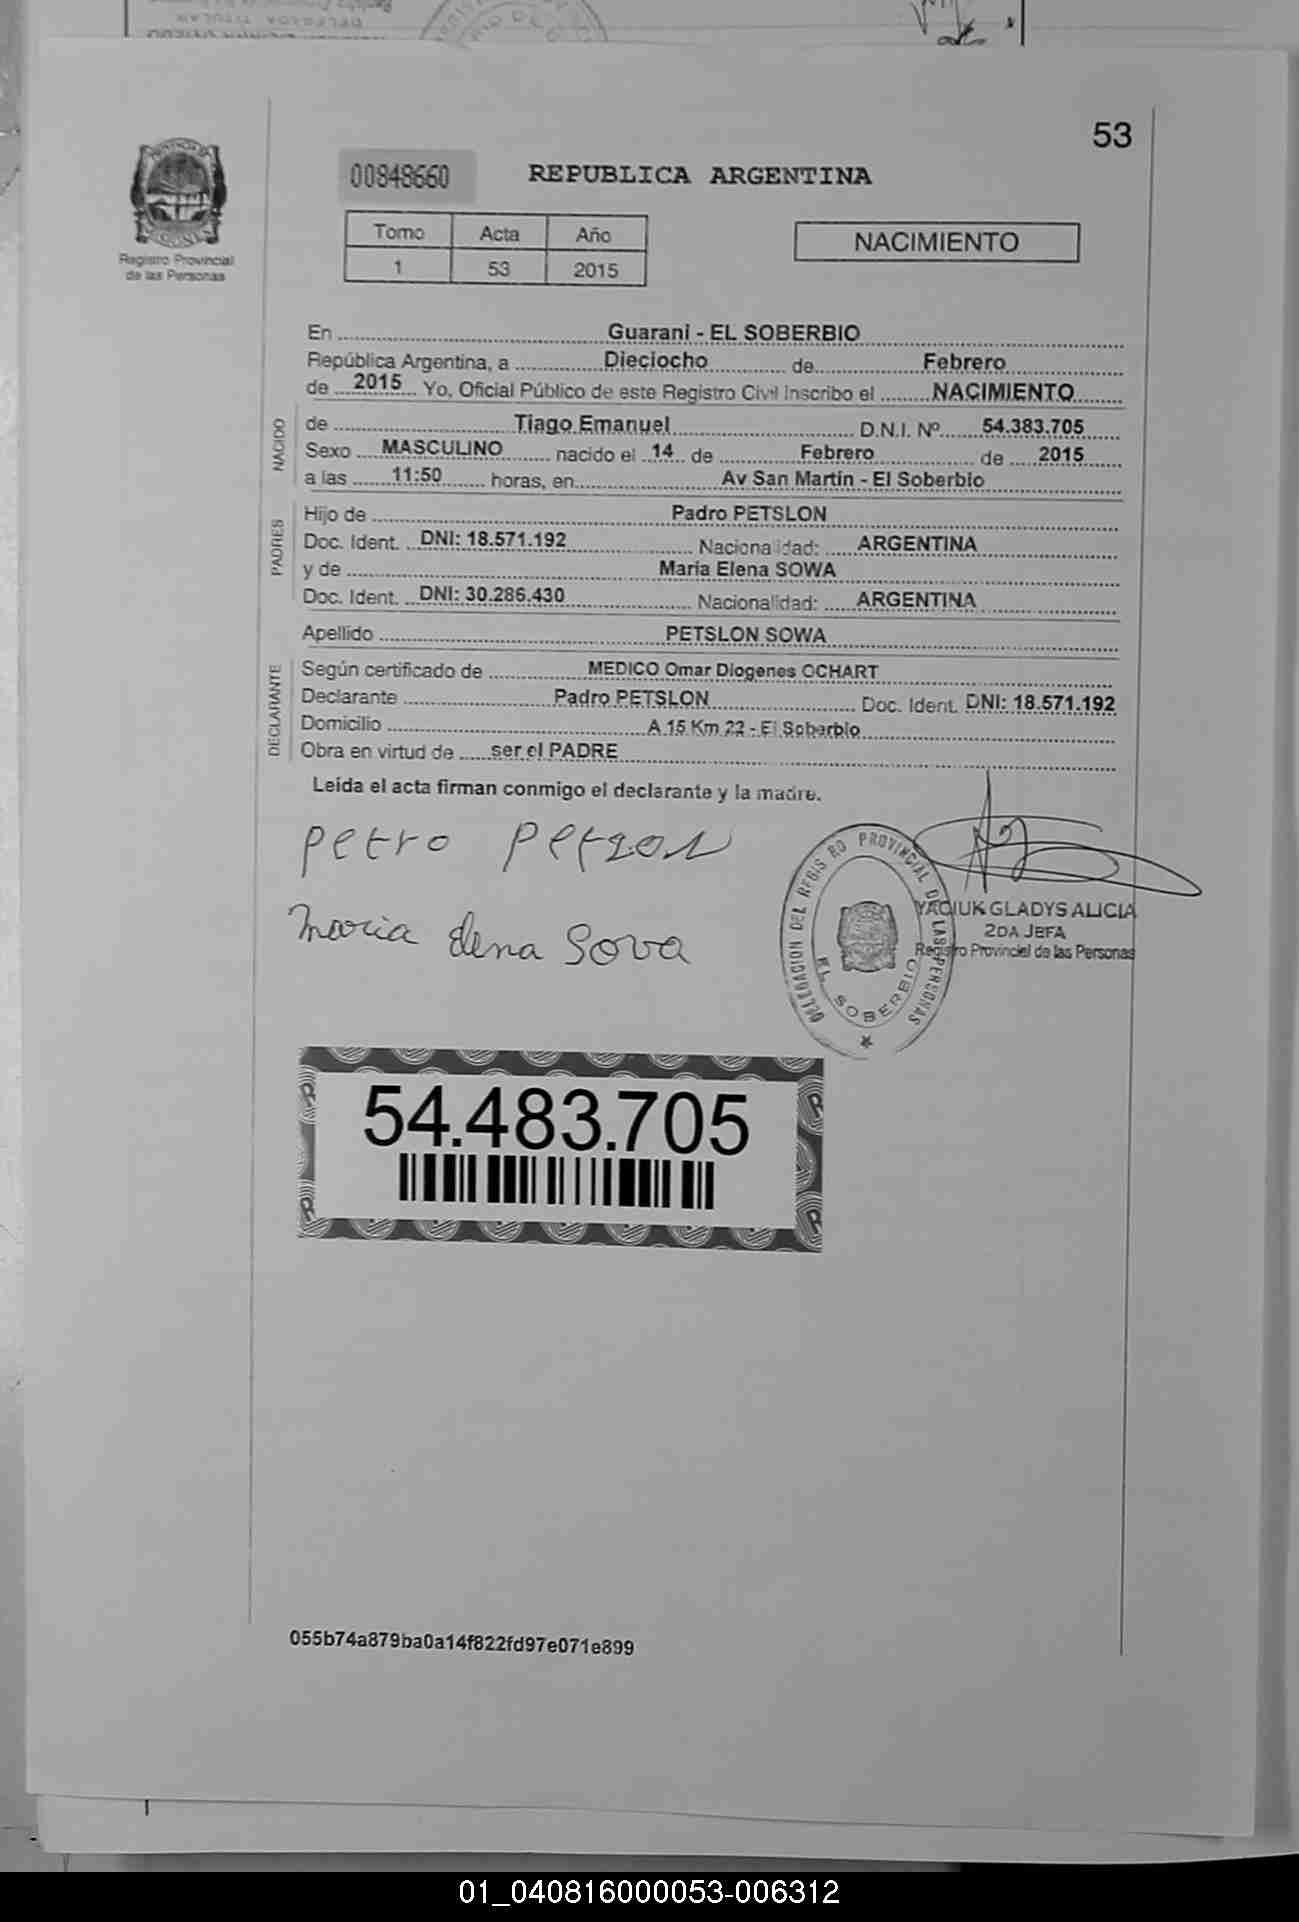 53
00848660
REPUBLICA ARGENTINA
Registro Provincial
de las Personas
Tomo Acta Año
1 53 2015
NACIMIENTO
En Guarani - EL SOBERBIO
República Argentina, a Dieciocho de Febrero
de 2015 Yo, Oficial Público de este Registro Civil inscribo el NACIMIENTO
NACIDO
de Tiago Emanuel D.N.I. Nº 54.383.705
Sexo MASCULINO nacido el 14 de Febrero de 2015
a las 11:50 horas, en Av San Martin - El Soberbio
PADRES
Hijo de Padro PETSLON
Doc. Ident. DNI: 18.571.192 Nacionalidad: ARGENTINA
y de Maria Elena SOWA
Doc. Ident. DNI: 30.286.430 Nacionalidad: ARGENTINA
Apellido PETSLON SOWA
DECLARANTE
Según certificado de MEDICO Omar Diogenes OCHART
Declarante Padro PETSLON Doc. Ident. DNI: 18.571.192
Domicilio A 15 Km 22 - El Soberbio
Obra en virtud de ser el PADRE
Leída el acta firman conmigo el declarante y la madre.
Petro
Maria Elena Sova
DELEGACION DEL REGISTRO PROVINCIAL DE LAS PERSONAS
EL SOBERBIO
YACIUK GLADYS ALICIA
2DA JEFA
Registro Provincial de las Personas
54.483.705
055b74a879ba0a14f822fd97e071e899
01_040816000053-006312